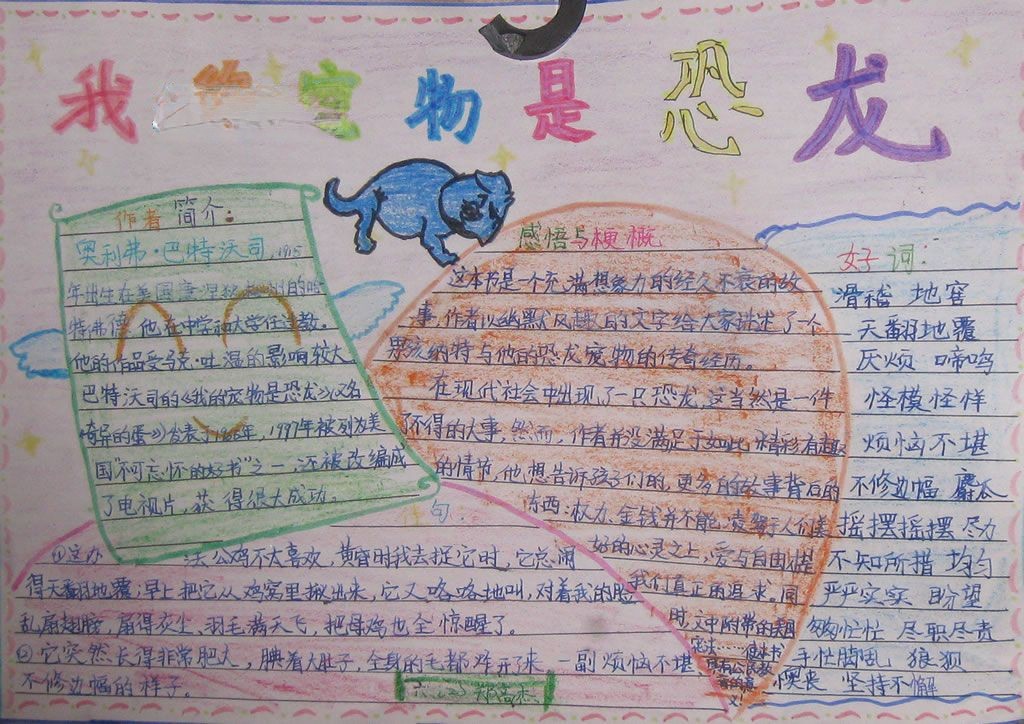 我的宠物是恐龙
作者简介:
奥利弗·巴特沃司,1915
年出生在美国康涅狄格州的哈
特弗德,他在中学和大学任过教。
他的作品受马克·吐温的影响较大。
巴特沃司的《我的宠物是恐龙》(又名
《奇异的蛋》)发表于1956年,1997年被列为美
国"不可忘怀的好书"之一,还被改编成
了电视片,获得很大成功。
感悟与梗概
这本书是一个充满想象力的经久不衰的故
事,作者以幽默风趣的文字给大家讲述了一个
男孩纳特与他的恐龙宠物的传奇经历。
在现代社会中出现了一只恐龙,这当然是一件
不得的大事,然而,作者并没满足于如此精彩有趣
的情节,他想告诉孩子们的,更多的故事背后的
东西:权力、金钱并不能凌驾于人们美
好的心灵之上,爱与自由才是
我们真正的追求。同
时,文中附带的美国
好词:
滑稽 地窖
天翻地覆
厌烦 啼鸣
怪模怪样
烦恼不堪
不修边幅 麝瓜
摇摆摇摆 尽力
不知所措 均匀
严严实实 盼望
匆匆忙忙 尽职尽责
手忙脚乱 狼狈
懊丧 坚持不懈
句:
①这办法公鸡不太喜欢,黄昏时我去捉它时,它总闹
得天翻地覆;早上把它从鸡窝里揪出来,它又咯咯地叫,对着我的脸
乱扇翅膀,扇得灰尘、羽毛满天飞,把母鸡也全惊醒了。
②它突然长得非常肥大,腆着大肚子,全身的毛都炸开了来,一副烦恼不堪、
不修边幅的样子。